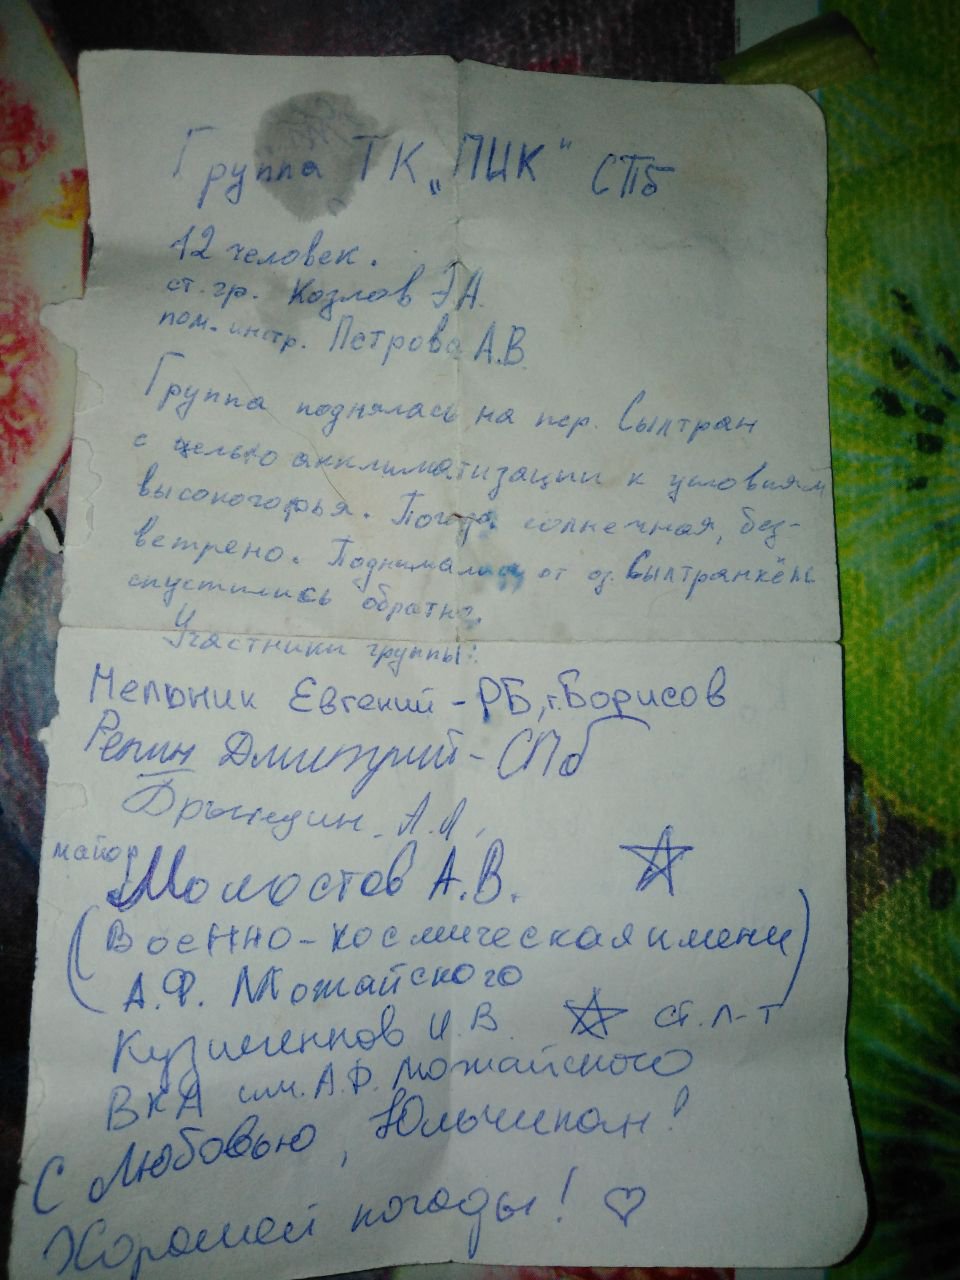 Группа ТК „ПИК" СПб
12 человек.
ст. гр. Козлов Г.А.
пом. инстр. Петрова А.В.
Группа поднялась на пер. Сылтран
с целью акклиматизации к условиям
высокогорья. Погода солнечная, без-
ветрено. Поднимались от оз. Сылтранкёль
спустились обратно.
Участники группы:
Мельник Евгений - РБ, г. Борисов
Репин Дмитрий - СПб
А.А.
майор
Моностав А.В.
(Военно-космическая имени
А.Ф. Можайского)
Кузименков И.В. ст. л-т
ВКА им. А.Ф. Можайского
С Любовью, Юльчикан!
Хорошей погоды!